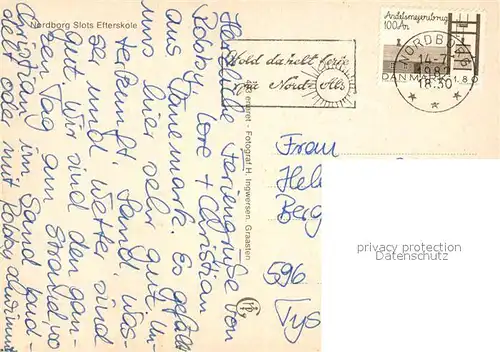 Nordborg Slots Efterskole
Herzliche Feriengrüße von
Robby, Lore + Christian
aus Dänemark. Es gefällt
uns hier sehr gut. Un-
terkunft, Sand, Was-
ser und Wetter sind
gut. Wir sind den gan-
zen Tag am Strand, wo
Christian im Sand bud-
delt oder mit Robby schwimmt
eneret - Fotograf H. Ingwersen. Graasten
Hold da helt ferie
på Nord-Als
NORDBORG
14-7
18.30
Andelsmejeribrug
100 År
DANMARK 1.80
Frau
Hel
Berg
596
Tys
privacy protection